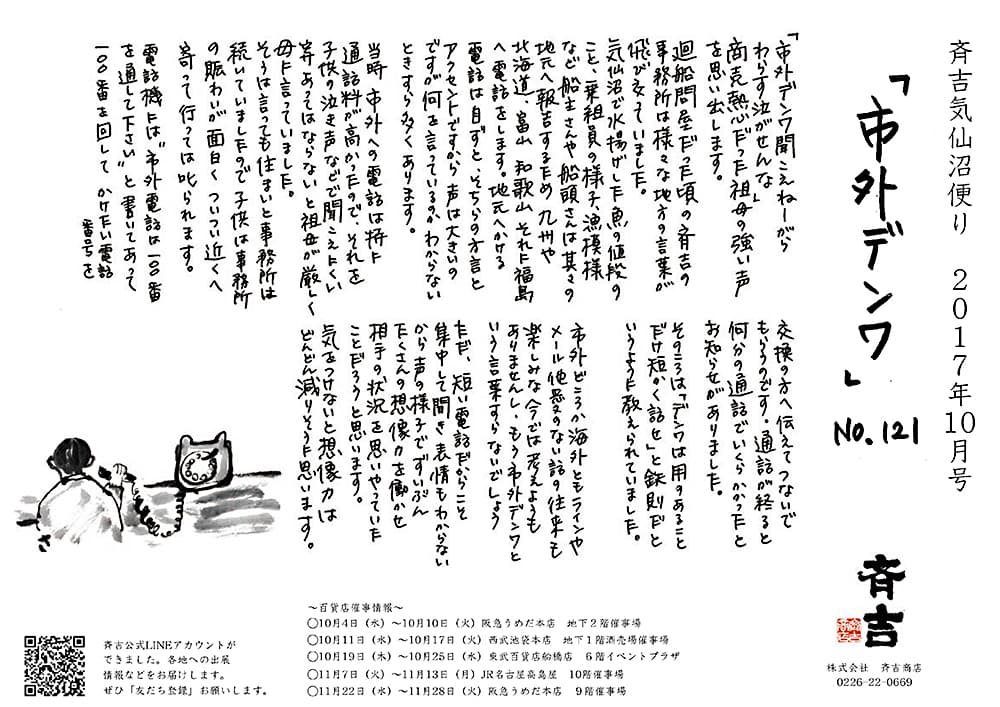 斉吉気仙沼便り 2017年10月号
「市外デンワ」
No.121
「市外デンワ聞こえねーがら
わらす泣がせんな」
商売熱心だった祖母の強い声
を思い出します。
廻船問屋だった頃の斉吉の
事務所は様々な地方の言葉が
飛び交っていました。
気仙沼で水揚げした魚の値段の
こと、乗組員の様子、漁模様
など船主さんや船頭さんは其々の
地元へ報告するため九州や
北海道、富山 和歌山 それに福島
へ電話をします。地元へかける
電話は自ずと、そちらの方言と
アクセントですから声は大きいの
ですが何を言っているのかわからない
ときすら多くあります。
当時 市外への電話は特に
通話料が高かったので、それを
子供の泣き声などで聞こえにくい
等あってはならないと祖母が厳しく
母に言っていました。
そうは言っても住まいと事務所は
続いていましたので 子供は事務所
の賑わいが面白く ついつい近くへ
寄って行っては叱られます。
電話機には"市外電話は一〇〇番
を通して下さい"と書いてあって
一〇〇番を回して かけたい電話
番号を
交換の方へ伝えて つないで
もらうのです。通話が終ると
何分の通話でいくらかかったと
お知らせがありました。
そのころは「デンワは用のあること
だけ短かく話せ」と鉄則だと
いうように教えられていました。
市外どころか海外ともラインや
メール他愛のない話の往来も
楽しみな今では考えようも
ありませんし、もう市外デンワと
いう言葉すらないでしょう
ただ、短い電話だからこそ
集中して聞き表情もわからない
から声の様子でずいぶん
たくさんの想像力を働かせ
相手の状況を思いやっていた
ことだろうと思います。
気をつけないと想像力は
どんどん減りそうに思います。
斉吉
株式会社 斉吉商店
0226-22-0669
～百貨店催事情報～
○10月4日（水）～10月10日（火）阪急うめだ本店 地下2階催事場
○10月11日（水）～10月17日（火）西武池袋本店 地下1階酒売場催事場
○10月19日（木）～10月25日（水）東武百貨店船橋店 6階イベントプラザ
○11月7日（火）～11月13日（月）JR名古屋高島屋 10階催事場
○11月22日（水）～11月28日（火）阪急うめだ本店 9階催事場
斉吉公式LINEアカウントが
できました。各地への出展
情報などをお届けします。
ぜひ「友だち登録」お願いします。